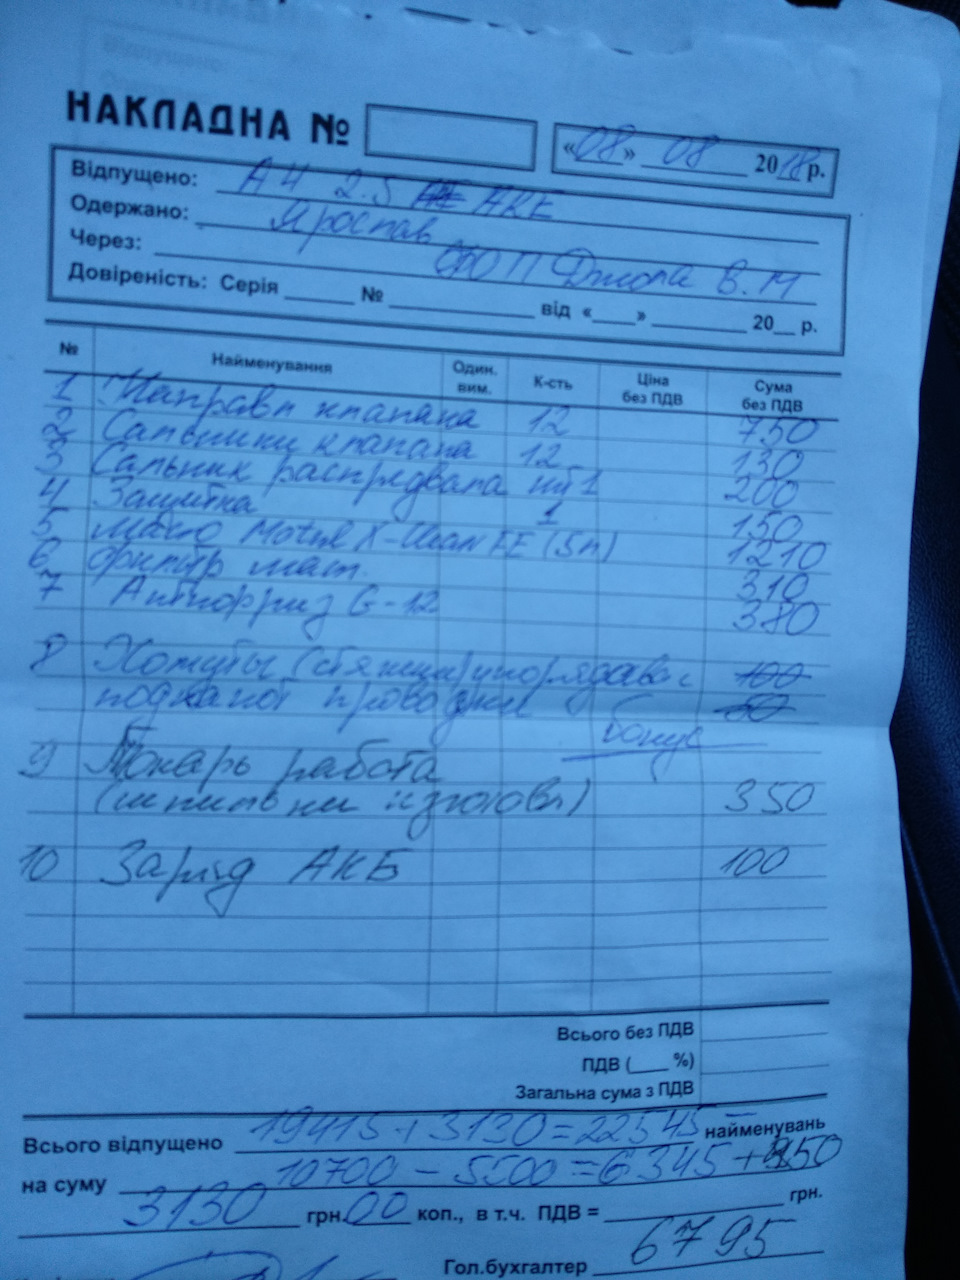 НАКЛАДНА №
«08» 08 2018 р.
Відпущено: А4 2.5 АКЕ
Одержано: Ярослав
Через: ФОП В.М
Довіреність: Серія ___ № ___ від «___» ___ 20__ р.
№ Найменування Один. вим. К-сть Ціна без ПДВ Сума без ПДВ
1 Направл клапана 12 750
2 Сальники клапана 12 130
3 Сальник распредвала шт 1 200
4 Защитка 1 150
5 Масло Motul X-Clean FE (5л) 1210
6 Фильтр мат. 310
7 Антифриз G-12 380
8 Хомуты (стяжки) 100
подкапот проводки 50
бонус
9 Токарь работа
(шпильки изготовл) 350
10 Заряд АКБ 100
Всього без ПДВ
ПДВ (___ %)
Загальна сума з ПДВ
Всього відпущено 19415 + 3130 = 22545 найменувань
на суму 10700 - 5500 = 6345 + 450
3130 грн. 00 коп., в т.ч. ПДВ = ___ грн.
Гол.бухгалтер 6795